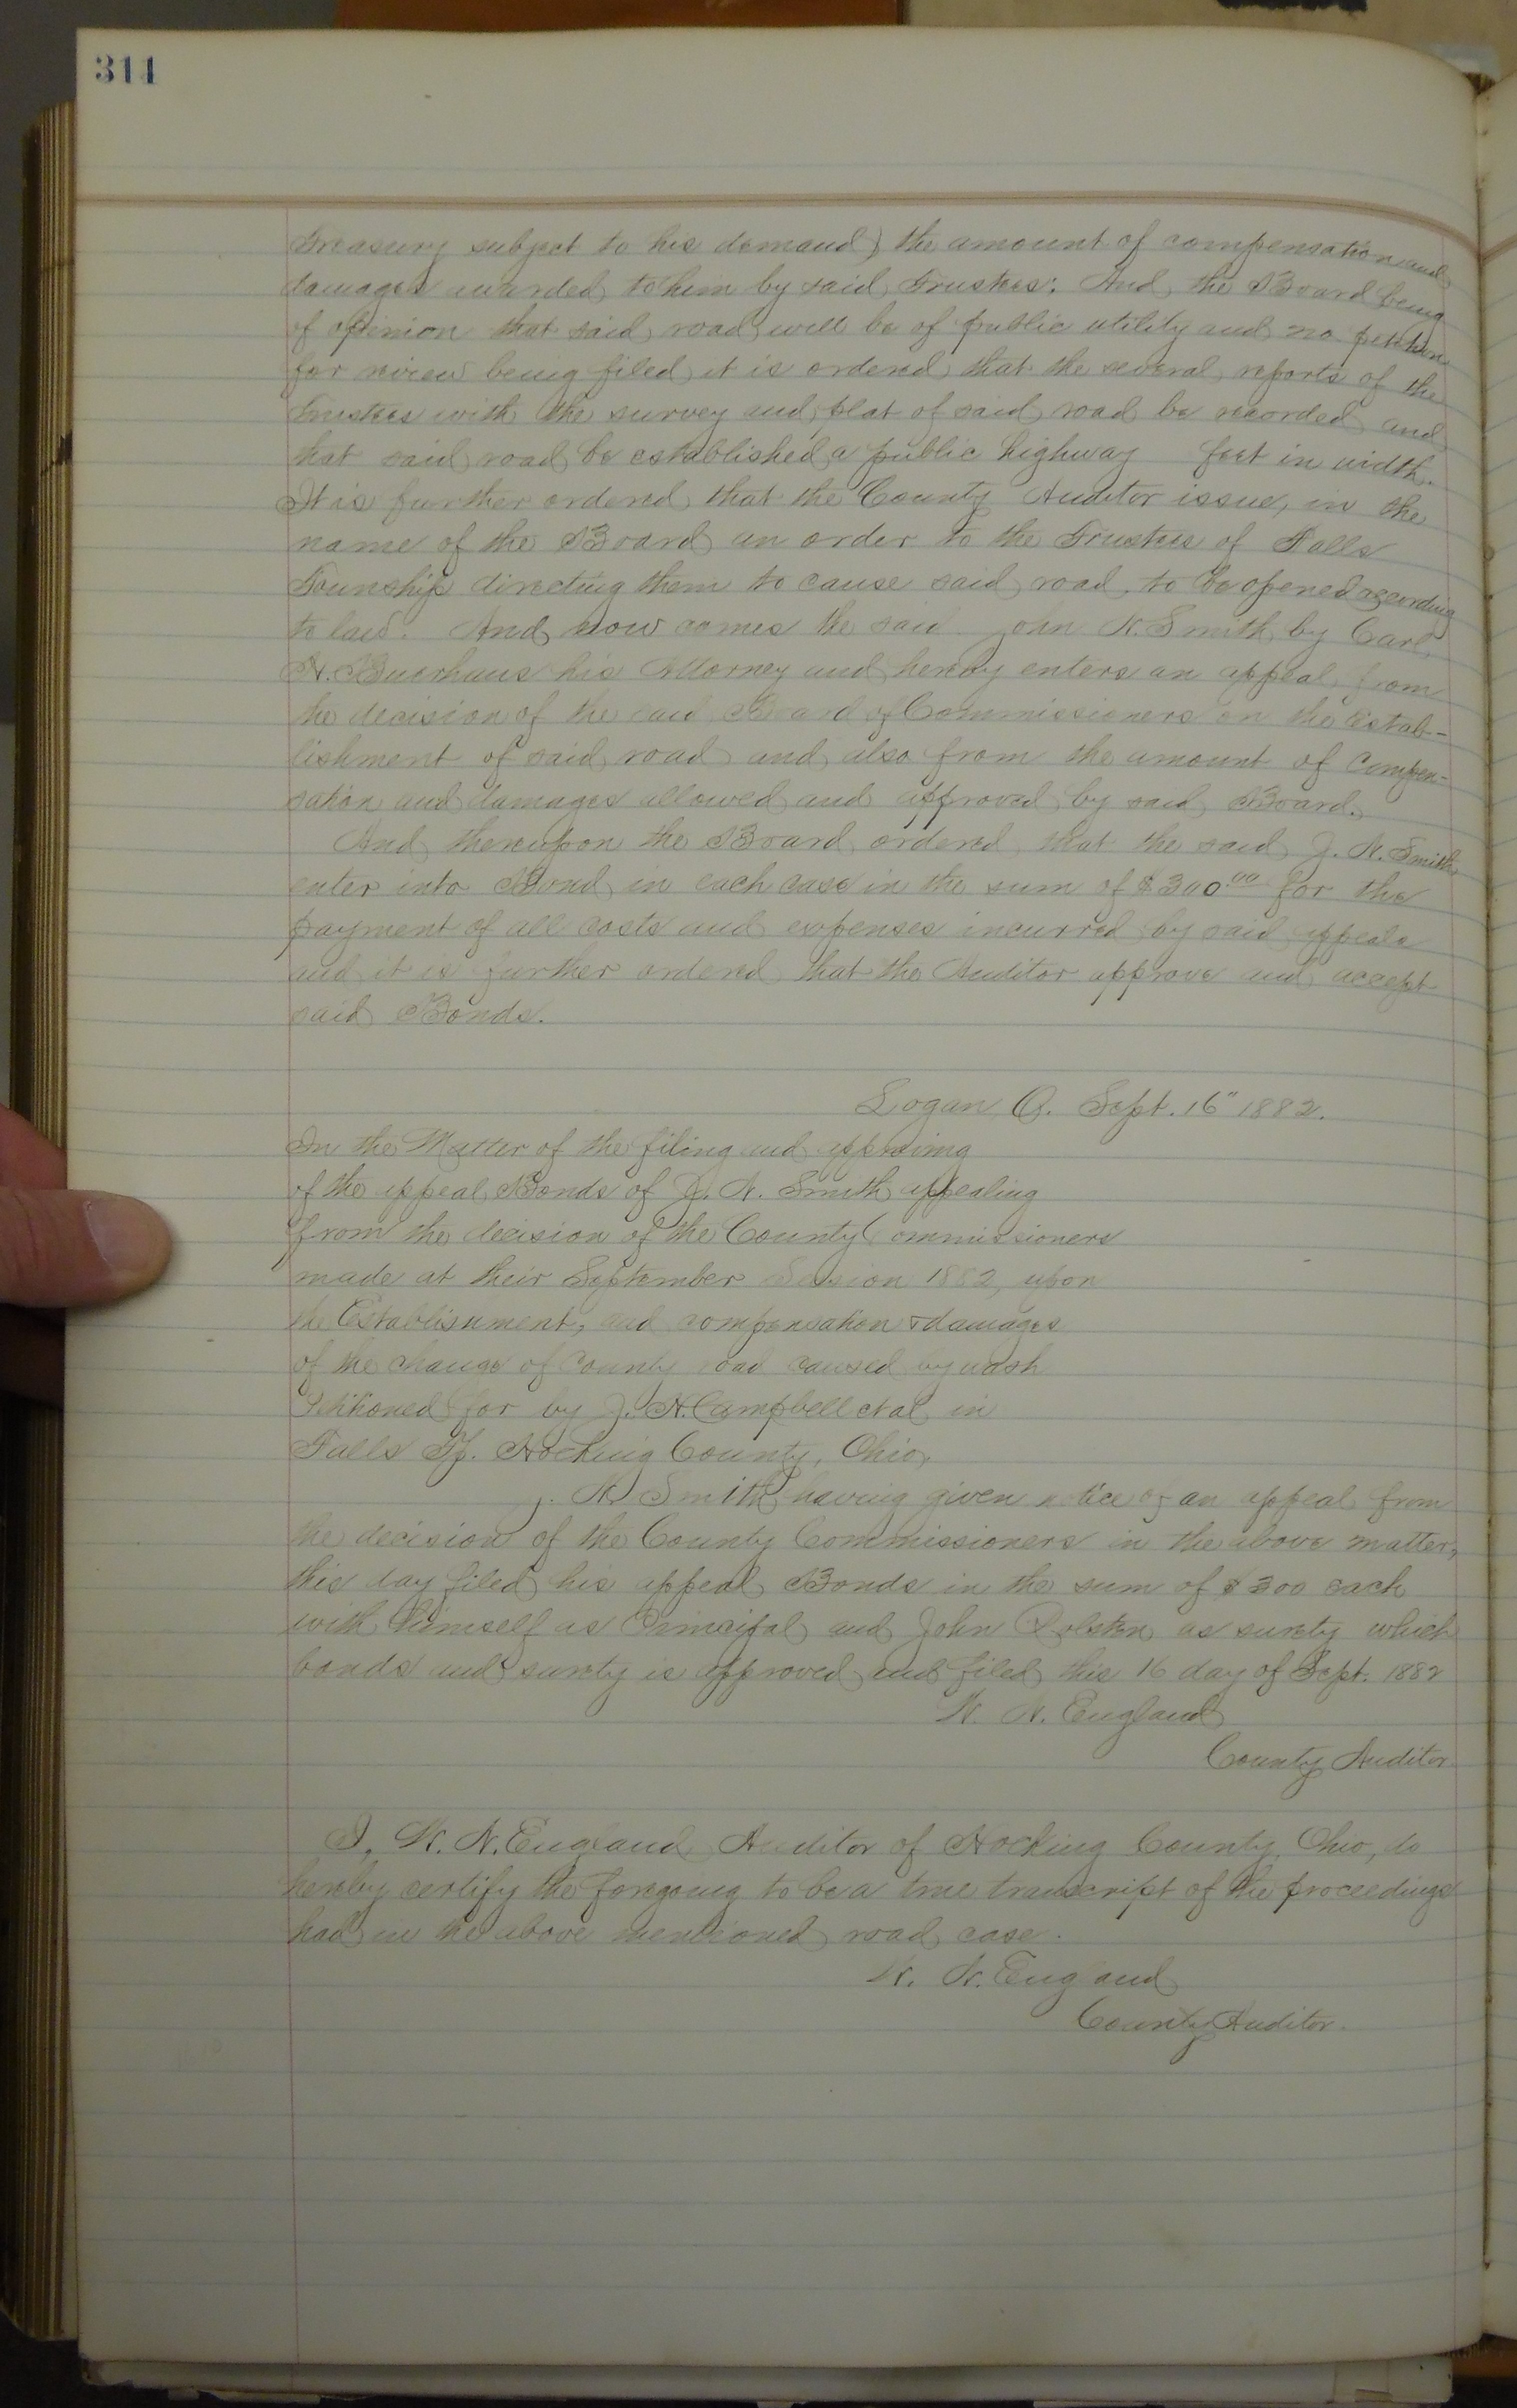 344
Treasury subject to his demand) the amount of compensation and
damages awarded to him by said Trustees: And the Board being
of opinion that said road will be of public utility and no petition
for review being filed it is ordered that the several reports of the
Trustees with the survey and plat of said road be recorded and
that said road be established a public highway feet in width.
It is further ordered that the County Auditor issue, in the
name of the Board an order to the Trustees of Falls
Township directing them to cause said road to be opened according
to law. And now comes the said John N. Smith by Carl
H. Buerhaus his Attorney and hereby enters an appeal from
the decision of the said Board of Commissioners on the Estab-
lishment of said road and also from the amount of Compen-
sation and damages allowed and approved by said Board.
And thereupon the Board ordered that the said J. N. Smith
enter into Bond in each case in the sum of $300.00 for the
payment of all costs and expenses incurred by said appeals
and it is further ordered that the Auditor approve and accept
said Bonds.
Logan, O. Sept. 16" 1882.
In the Matter of the filing and approving
of the appeal Bonds of J. N. Smith appealing
from the decision of the County Commissioners
made at their September Session 1882, upon
the Establishment, and compensation & damages
of the change of County road caused by wash
Petitioned for by J. H. Campbell et al in
Falls Tp. Hocking County, Ohio,
J. N. Smith having given notice of an appeal from
the decision of the County Commissioners in the above matter,
this day filed his appeal Bonds in the sum of $300 each
with himself as Principal and John as surety which
bonds and surety is approved and filed this 16 day of Sept. 1882
W. N. England
County Auditor
I, W. N. England Auditor of Hocking County, Ohio, do
hereby certify the foregoing to be a true transcript of the proceedings
had in the above mentioned road case.
W. N. England
County Auditor.